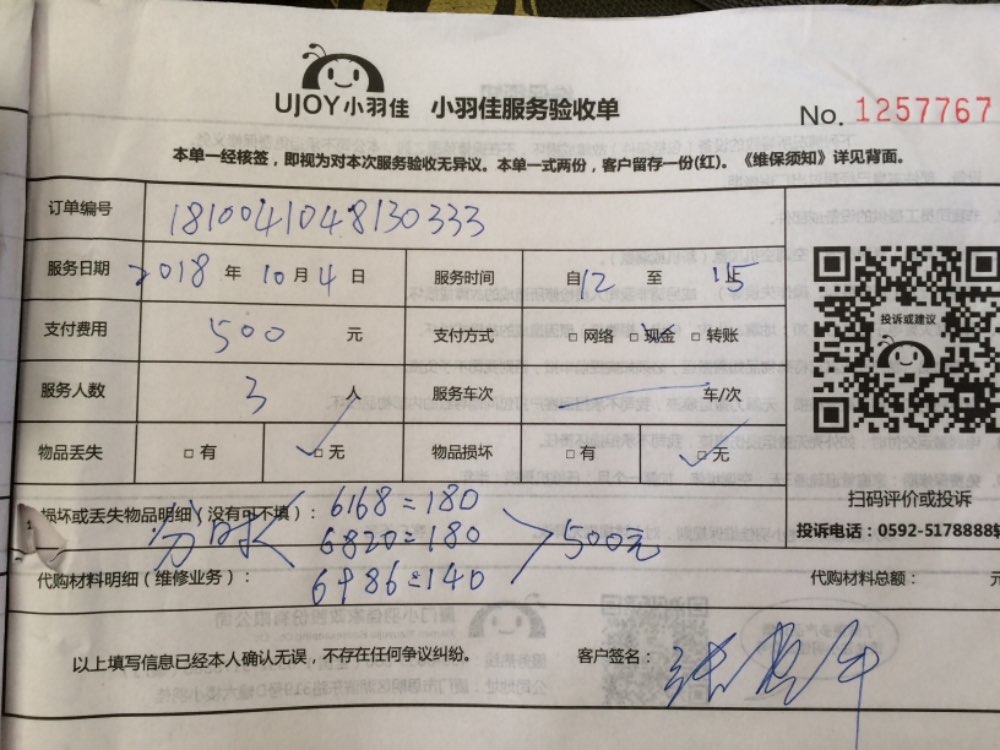 UJOY小羽佳 小羽佳服务验收单
No. 1257767
本单一经核签，即视为对本次服务验收无异议。本单一式两份，客户留存一份(红)。《维保须知》详见背面。
订单编号 1810041048130333
服务日期 2018 年 10 月 4 日 服务时间 自12 至 15
支付费用 500 元 支付方式 □ 网络 □ 现金 □ 转账
投诉或建议
服务人数 3 人 服务车次 车/次
物品丢失 □ 有 □ 无 物品损坏 □ 有 □ 无
扫码评价或投诉
投诉电话：0592-5178888转
损坏或丢失物品明细（没有可不填）：6168=180
分成 6820=180 500元
6986=140
代购材料明细（维修业务）： 代购材料总额： 元
以上填写信息已经本人确认无误，不存在任何争议纠纷。 客户签名：